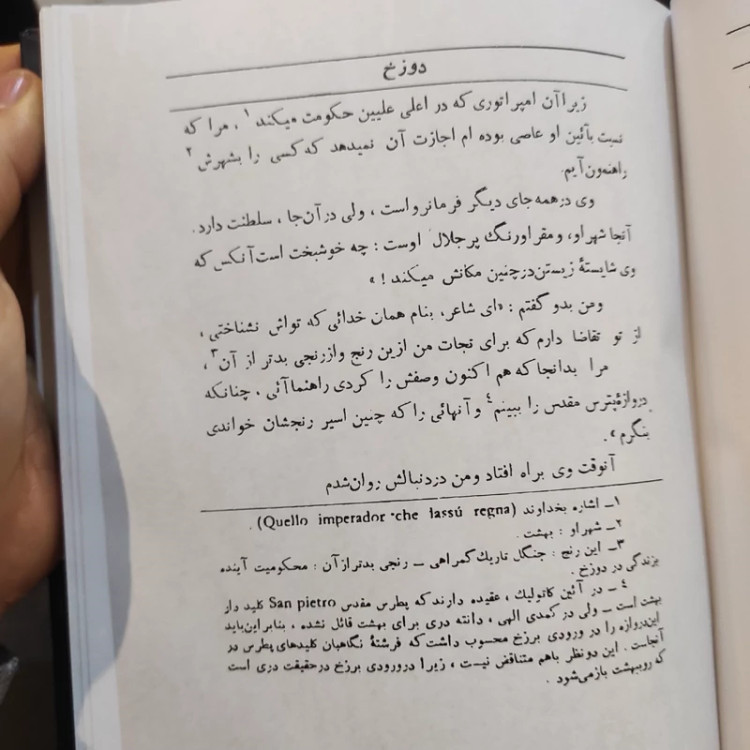 دوزخ
زیرا آن امپراتوری که در اعلی علیین حکومت میکند۱ ، مرا که
نسبت بآئین او عاصی بوده ام اجازت آن نمیدهد که کسی را بشهرش۲
راهنمون آیم.
وی در همه جای دیگر فرمانرواست ، ولی در آن جا ، سلطنت دارد.
آنجا شهر او، و مقر اورنگ پر جلال اوست : چه خوشبخت است آنکس که
وی شایستهٔ زیستن در چنین مکانش میکند ! »
و من بدو گفتم : «ای شاعر، بنام همان خدائی که تواش نشناختی ،
از تو تقاضا دارم که برای نجات من ازین رنج و از رنجی بدتر از آن۳ ،
مرا بدانجا که هم اکنون وصفش را کردی راهنما آئی ، چنانکه
دروازهٔ پترس مقدس را ببینم۴ و آنهائی را که چنین اسیر رنجشان خواندی
بنگرم».
آنوقت وی براه افتاد و من در دنبالش روان شدم
۱ــ اشاره بخداوند (Quello imperador che lassú regna).
۲ــ شهر او : بهشت .
۳ــ این رنج : جنگل تاریک گمراهی ــ رنجی بدتر از آن : محکومیت آینده
بزندگی در دوزخ .
۴ ــ در آئین کاتولیک ، عقیده دارند که پطرس مقدس San pietro کلید دار
بهشت است ــ ولی در کمدی الهی ، دانته دری برای بهشت قائل نشده ، بنابر این باید
این دروازه را در ورودی برزخ محسوب داشت که فرشتهٔ نگاهبان کلیدهای پطرس در
آنجاست . این دو نظر باهم متناقض نیست ، زیرا در ورودی برزخ در حقیقت دری است
که رو ببهشت باز می‌شود .